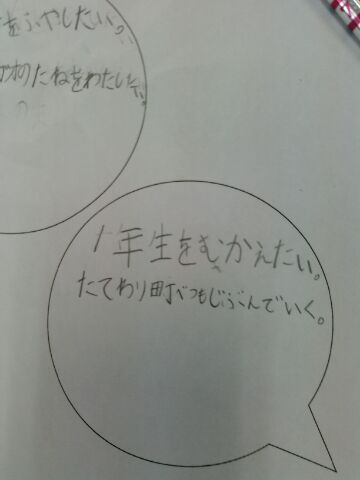 をふやしたい。
のたねをわたしたい。
1年生をむかえたい。
たてわり町べつもじゅんで いく。